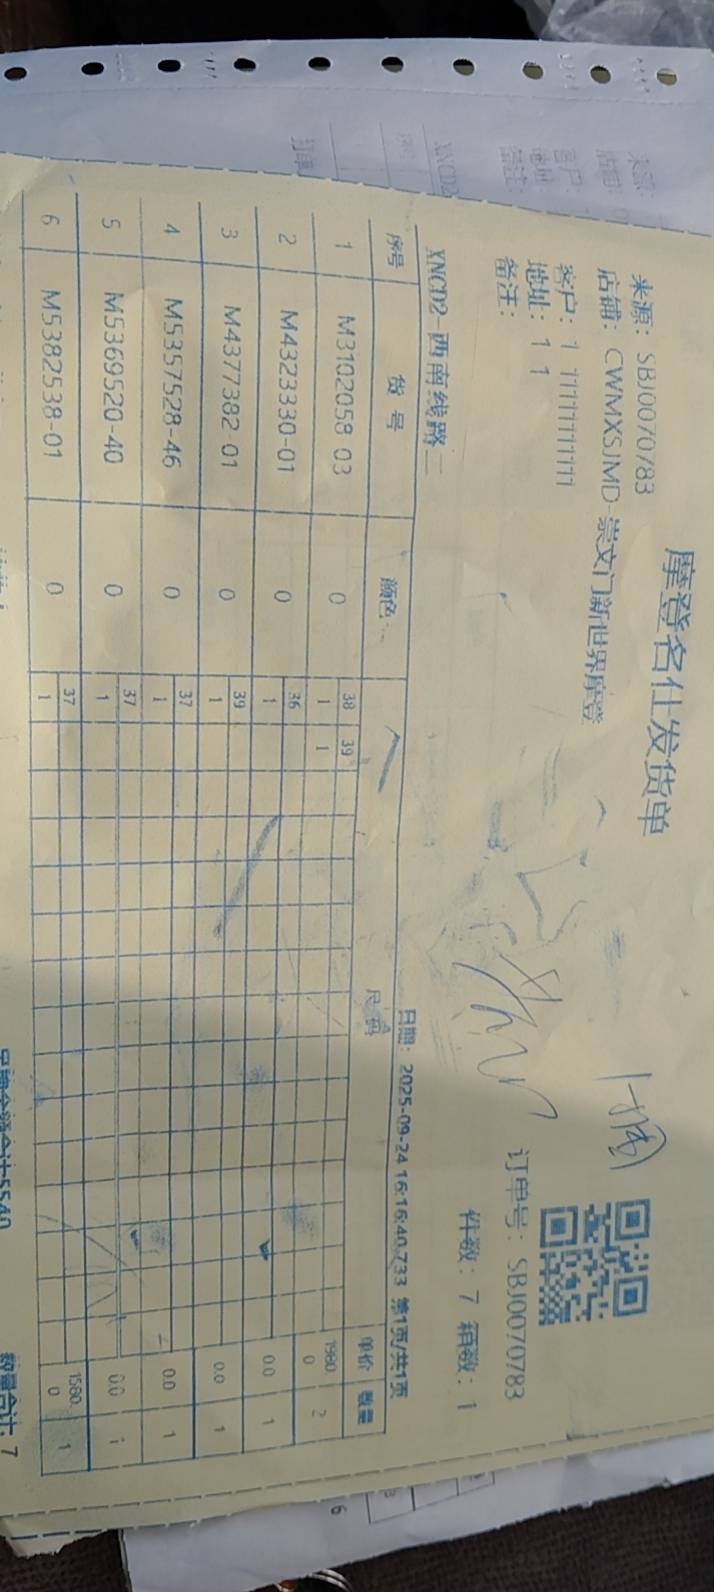 摩登名仕发货单
来源：SBJ0070783
店铺：CWMXSJMD-崇文门新世界摩登
客户：1 11111111111 订单号：SBJ0070783
地址：1 1
备注： 件数：7 箱数：1
XNCD2-西南线路二 日期：2025-09-24 16:16:40.733 第1页/共1页
序号 货号 颜色 尺码 单价 数量
38 39
1 M3102058-03 0 1 1 1980.0 2
36
2 M4323330-01 0 1 0.0 1
39
3 M4377382-01 0 1 0.0 1
37
4 M5357528-46 0 1 0.0 1
37
5 M5369520-40 0 1 0.0 1
37
6 M5382538-01 0 1 1580.0 1
吊牌金额合计5540 数量合计：7